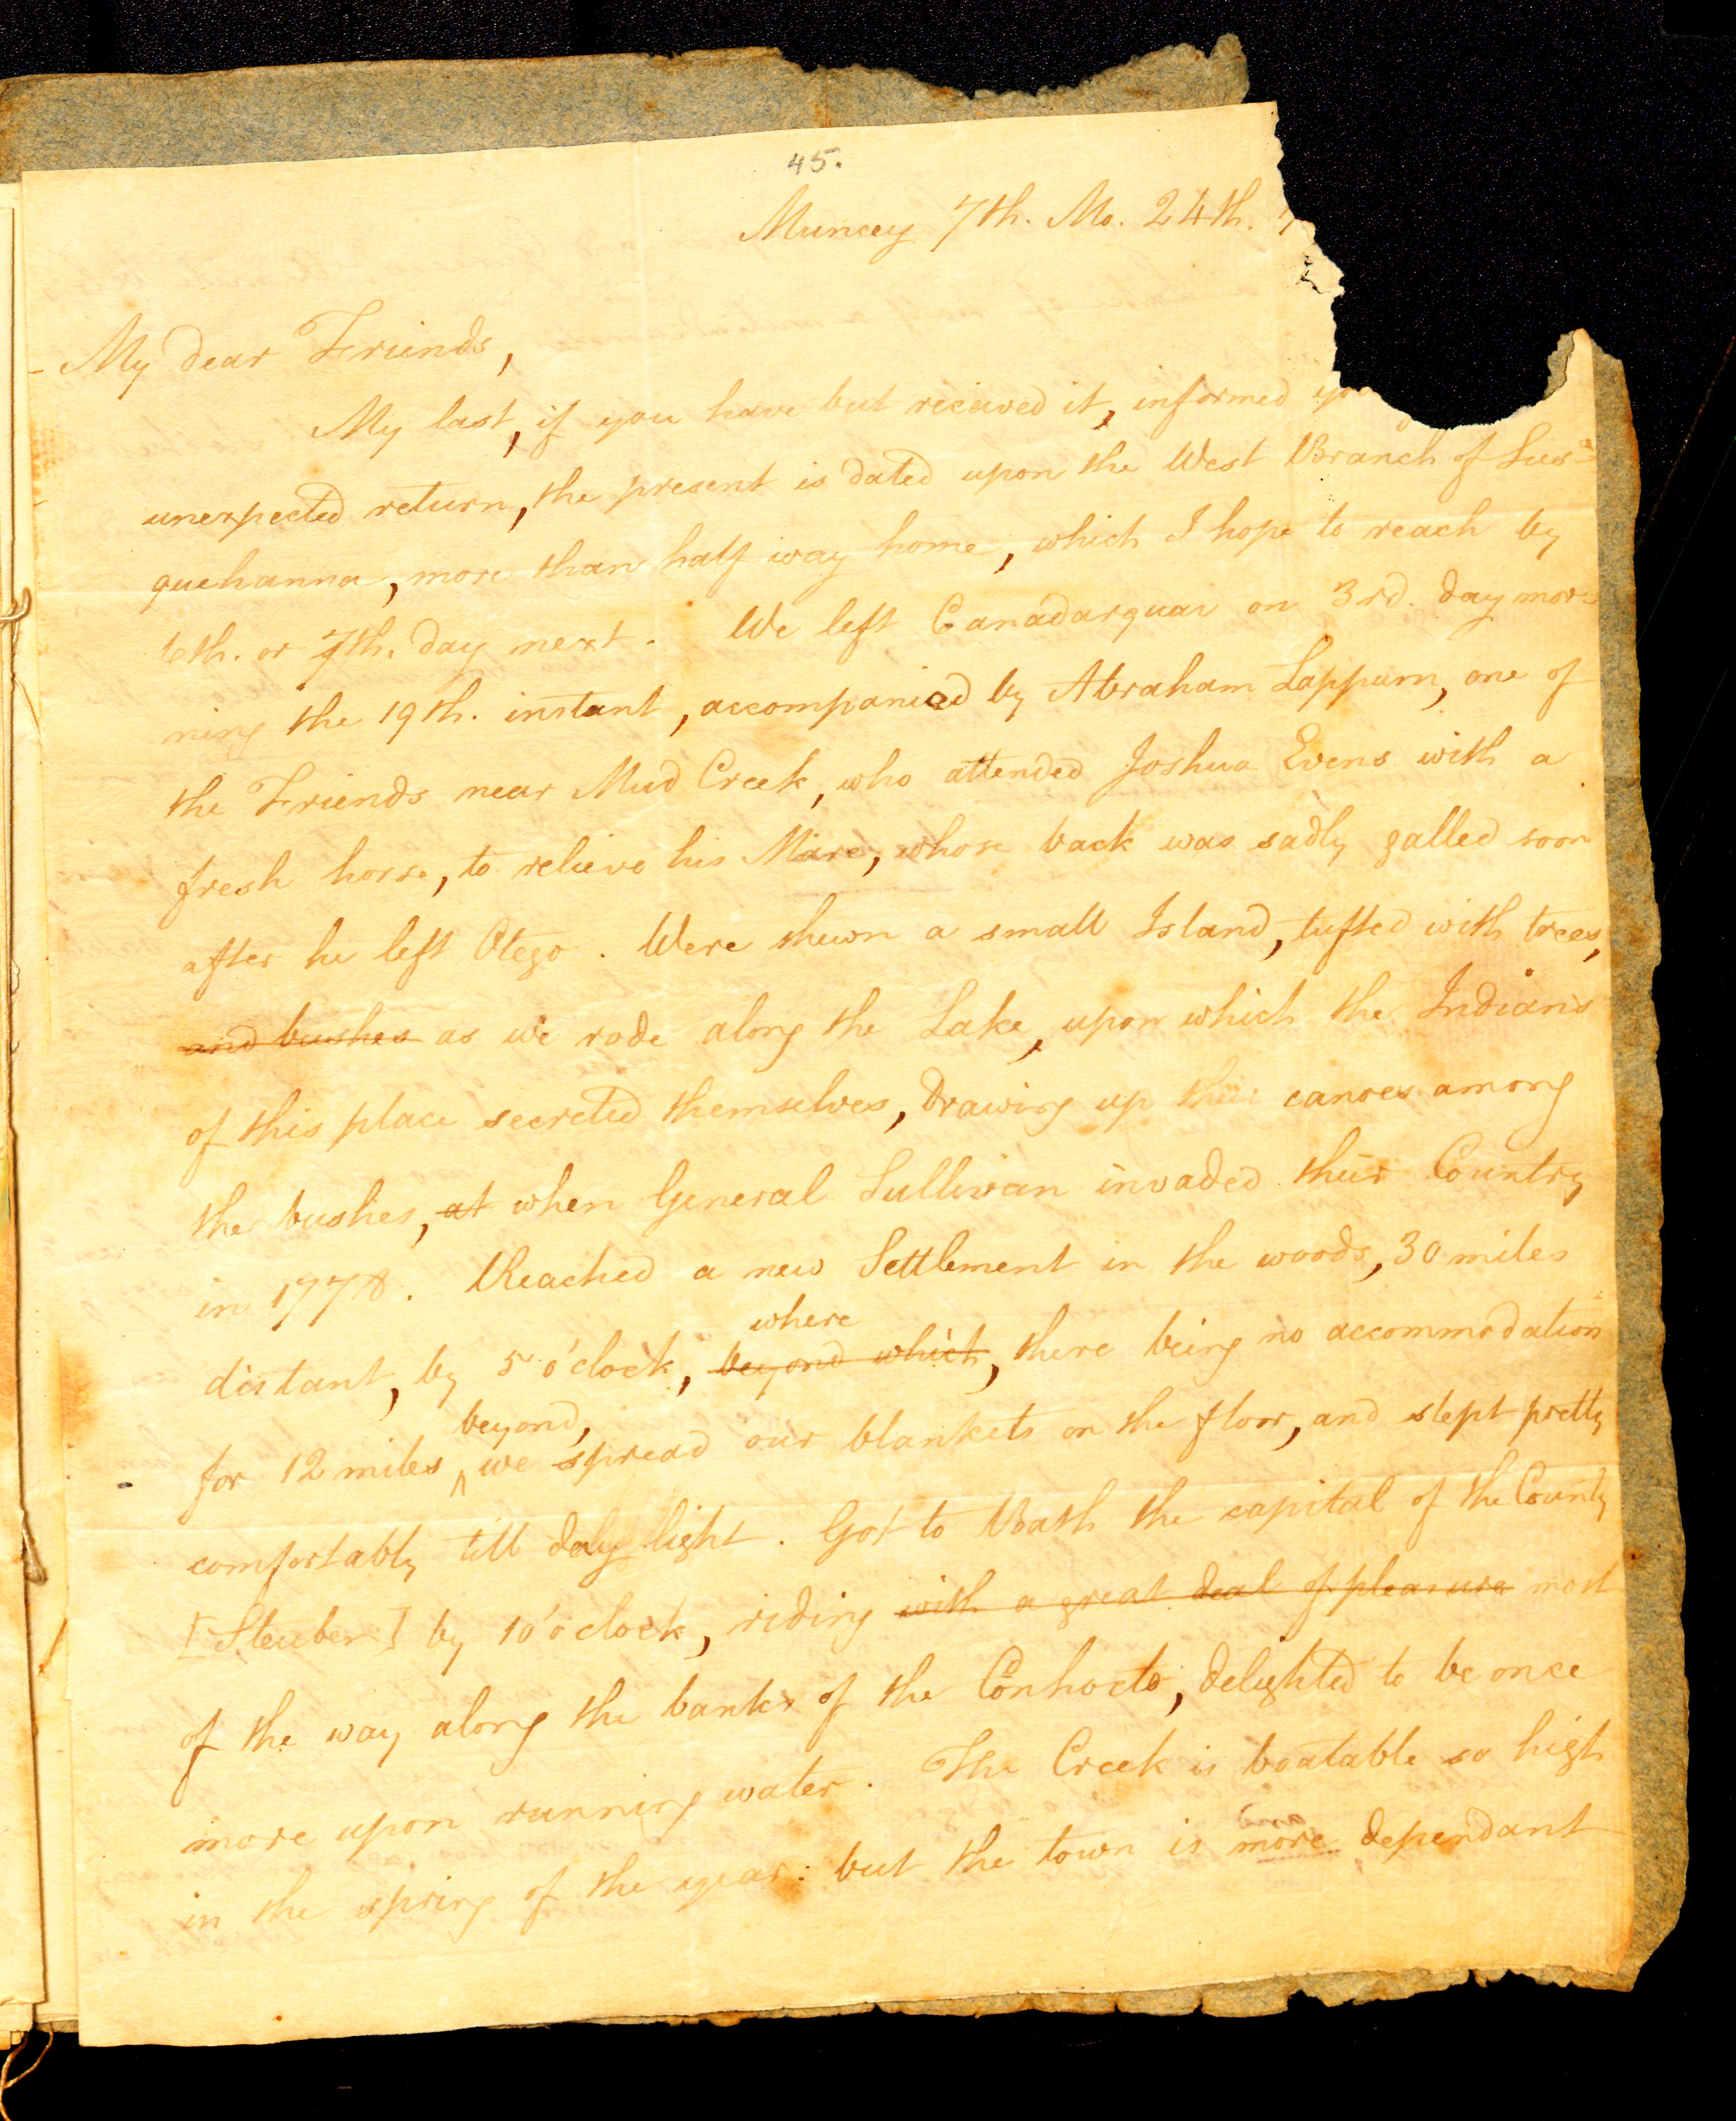 45.
Muncey 7th. Mo. 24th. 7
My dear Friends,
My last, if you have but received it, informed yo
unexpected return, the present is dated upon the West Branch of Sus=
quehanna, more than half way home, which I hope to reach by
6th. or 7th. day next. We left Canadarquai on 3rd. day mor=
ning the 19th. instant, accompanied by Abraham Lappum, one of
the Friends near Mud Creek, who attended Joshua Evens with a
fresh horse, to relieve his Mare, whose back was sadly galled soon
after he left Otego. Were shewn a small Island, tufted with trees,
and bushes as we rode along the Lake, upon which the Indians
of this place secreted themselves, drawing up their canoes among
the bushes, at when General Sullivan invaded their Country
in 1778. Reached a new Settlement in the woods, 30 miles
where
distant, by 5 o'clock, beyond which, there being no accommodation
beyond,
for 12 miles ^ we spread our blankets on the floor, and slept pretty
comfortably till day light. Got to Bath the capital of the County
[Steuben] by 10 o'clock, riding with a great deal of pleasure most
of the way along the banks of the Conhocto, delighted to be once
more upon running water. The Creek is boatable so high
in the spring of the year: but the town is more dependant